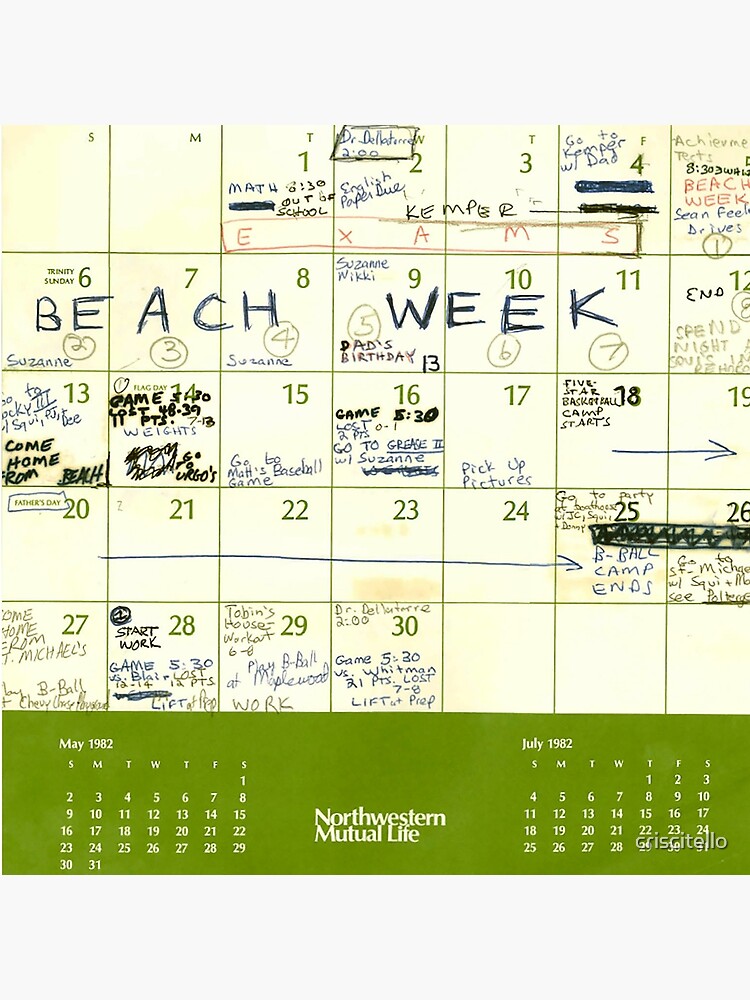 S M T W T F
1
MATH 8:30
OUT OF
SCHOOL
Dr. Dellatorre
2:00
2
English
Paper Due
3
KEMPER
Go to
Kemper
w/ Dad
4
E X A M S
Achieveme
Tests
8:30
BEACH
WEEK
Sean Feel
Drives
1
TRINITY
SUNDAY 6
7
8
Suzanne
Nikki
9
10
11
12
BEACH WEEK
2
3
4
5
6
7
8
Suzanne
Suzanne
DAD'S
BIRTHDAY
13
END
SPEND
NIGHT A
SQUI'S IN
REHOBO
13
Go to
Rocky III
w/ Squi, PJ,
Dee
COME
HOME
FROM BEACH
1
FLAG DAY 14
GAME 5:30
LOST 48-39
11 PTS. 7-13
WEIGHTS
GO
TO
URGO'S
15
Go to
Matt's Baseball
Game
16
GAME 5:30
LOST 0-1
2 PTS
GO TO GREASE II
w/ Suzanne
17
Pick Up
Pictures
FIVE-
STAR 18
BASKETBALL
CAMP
STARTS
19
FATHER'S DAY
20
2
21
22
23
24
Go to party
at boathouse
w/ JC, Squi
+ Donny
25
B-BALL
CAMP
ENDS
26
Go to
St. Michae
w/ Squi + Mo
see Polterge
27
COME
HOME
FROM
ST. MICHAEL'S
Play B-Ball
at Chevy Chase Playground
2
28
START
WORK
GAME 5:30
vs. Blair LOST
12-14 12 PTS
LIFT at Prep
Tobin's
House-
Workout
6-8
29
Play B-Ball
at Maplewood
WORK
Dr. Dellatorre
2:00
30
Game 5:30
vs. Whitman
21 PTS. LOST
7-8
LIFT at Prep
May 1982
S M T W T F S
1
2 3 4 5 6 7 8
9 10 11 12 13 14 15
16 17 18 19 20 21 22
23 24 25 26 27 28 29
30 31
Northwestern
Mutual Life
July 1982
S M T W T F S
1 2 3
4 5 6 7 8 9 10
11 12 13 14 15 16 17
18 19 20 21 22 23 24
25 26 27 28 29 30 31
criscitello